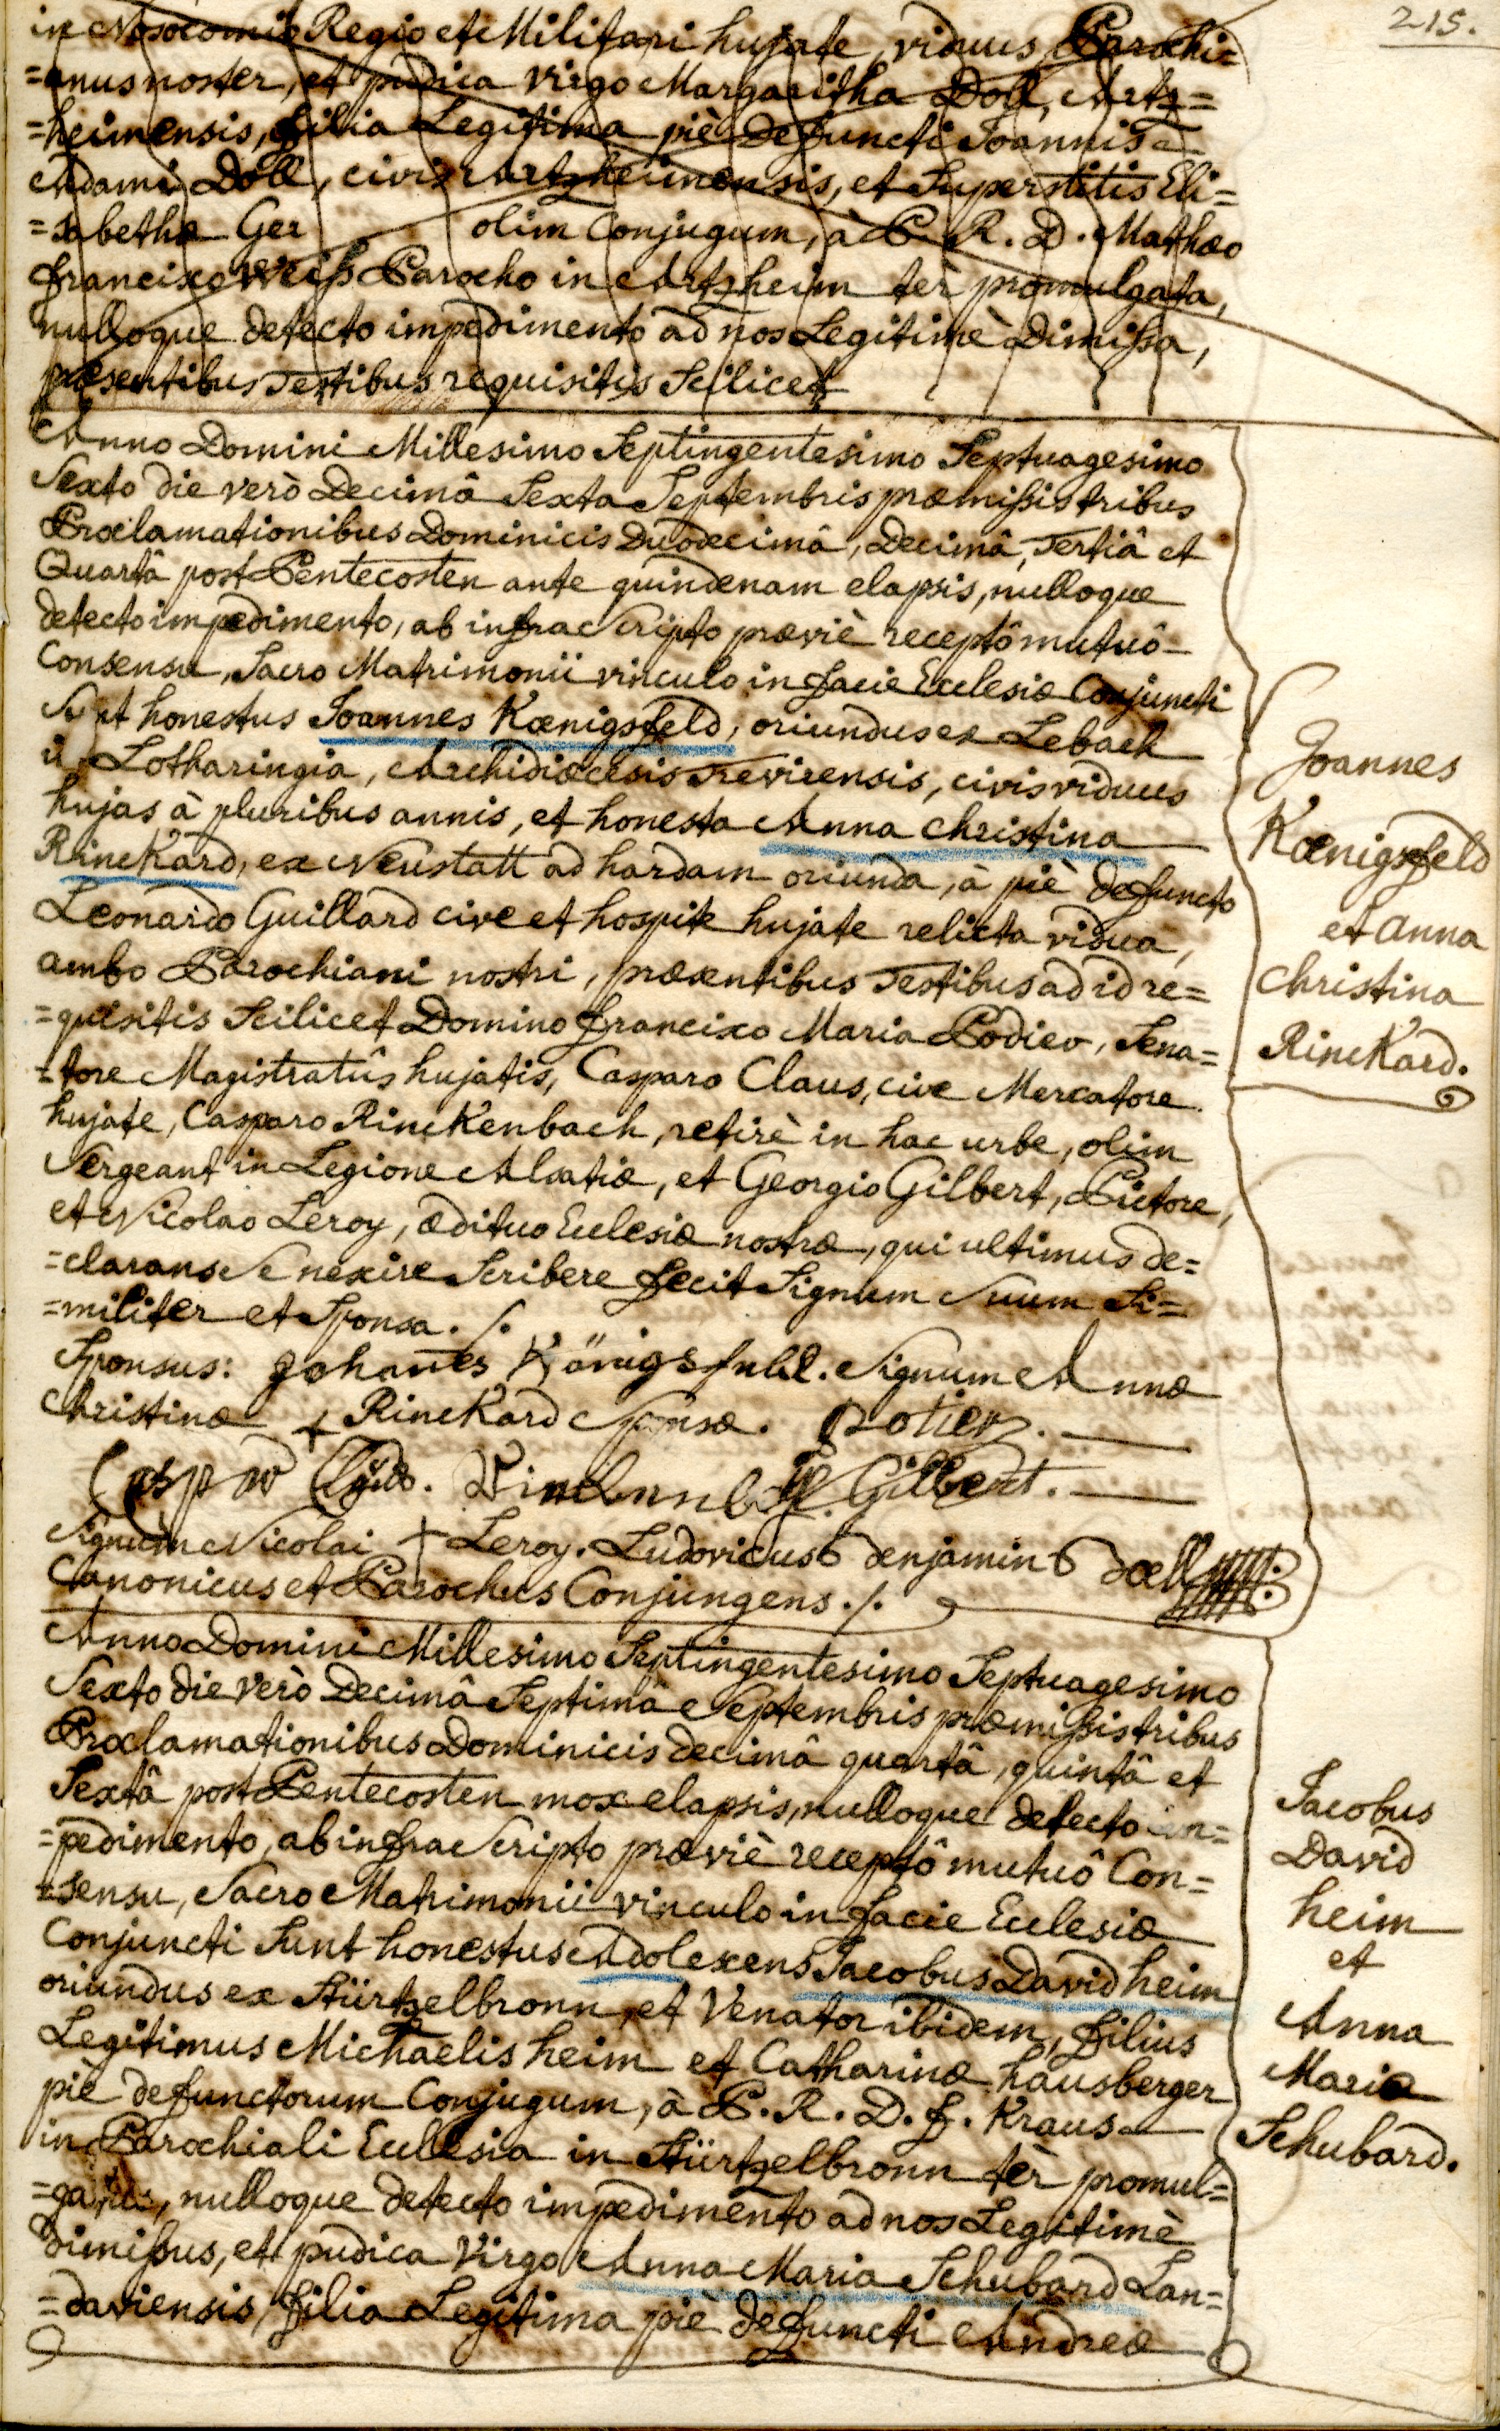 215.
in Nosocomio Regio et Militari hujate, viduus Parochi=
=anus noster, et pudica virgo Margaritha Doll, Artz=
=heimensis, filia Legitima piè defuncti Joannis
Adami Doll, civis Artzheimensis, et Superstitis Eli=
=sabethæ Ger olim Conjugum, à P. R. D. Mathæo
francisco Weiß Parocho in Artzheim tèr promulgata,
nulloque detecto impedimento ad nos Legitimè Dimißa,
præsentibus Testibus requisitis Scilicet
Anno Domini Millesimo Septingentesimo Septuagesimo
Sexto die verò Decimâ Sexta Septembris præmißis tribus
Proclamationibus Dominicis Duodecimâ, Decimâ, Tertiâ et
Quartâ post Pentecosten ante quindenam elapsis, nulloque
detecto impedimento, ab infrascripto præviè receptô mutuô
Consensu, Sacro Matrimonii vinculo in facie Ecclesiæ Conjuncti
Sunt honestus Joannes Kœnigsfeld, oriundus ex Lebach
in Lotharingia, Archidiœcesis Trevirensis, civis viduus
hujas à pluribus annis, et honesta Anna Christina
RincKard, ex Neustatt ad hardam oriunda, à piè defuncto
Leonardo Guillard cive et hospite hujate relicta vidua,
ambo Parochiani nostri, præsentibus Testibus ad id re=
=quisitis Scilicet Domino francisco Maria Podiev, Sena=
=tore Magistratûs hujatis, Casparo Claus, cive Mercatore
hujate, Casparo RincKenbach, retirè in hac urbe, olim
Sergeant in Legione Alsatiæ, et Georgio Gilbert, Pictore,
et Nicolao Leroy, ædituo Ecclesiæ nostræ, qui ultimus de=
=clarans Se nescire Scribere fecit Signum Suum Si=
=militer et Sponsa ./.
Sponsus: Johanes Königsfeld. Signum Annæ
Christinæ + RincKard Sponsæ. Potier.
Caspar G. Gilbert.
Signum Nicolai + Leroy. Ludovicus Benjamin Doell
Canonicus et Parochus Conjungens ./.
Joannes
Kœnigsfeld
et Anna
Christina
RincKard.
Anno Domini Millesimo Septingentesimo Septuagesimo
Sexto die verò Decimâ Septimâ Septembris præmißis tribus
Proclamationibus Dominicis decimâ quartâ, quintâ et
Sextâ post Pentecosten mox elapsis, nulloque detecto im=
=pedimento, ab infrascripto præviè receptô mutuô Con=
=sensu, Sacro Matrimonii vinculo in facie Ecclesiæ
Conjuncti Sunt honestus Adolescens Jacobus David heim
oriundus ex Stürtzelbronn, et Venator ibidem, filius
Legitimus Michaelis heim et Catharinæ hausberger
piè defunctorum Conjugum, à P. R. D. f. Kraus
in Parochiali Ecclesia in Stürtzelbronn tèr promul=
=gatus, nulloque detecto impedimento ad nos Legitimè
dimißus, et pudica Virgo Anna Maria Schubard Lan=
=daviensis filia Legitima piè defuncti Andreæ
Jacobus
David
heim
et
Anna
Maria
Schubard.